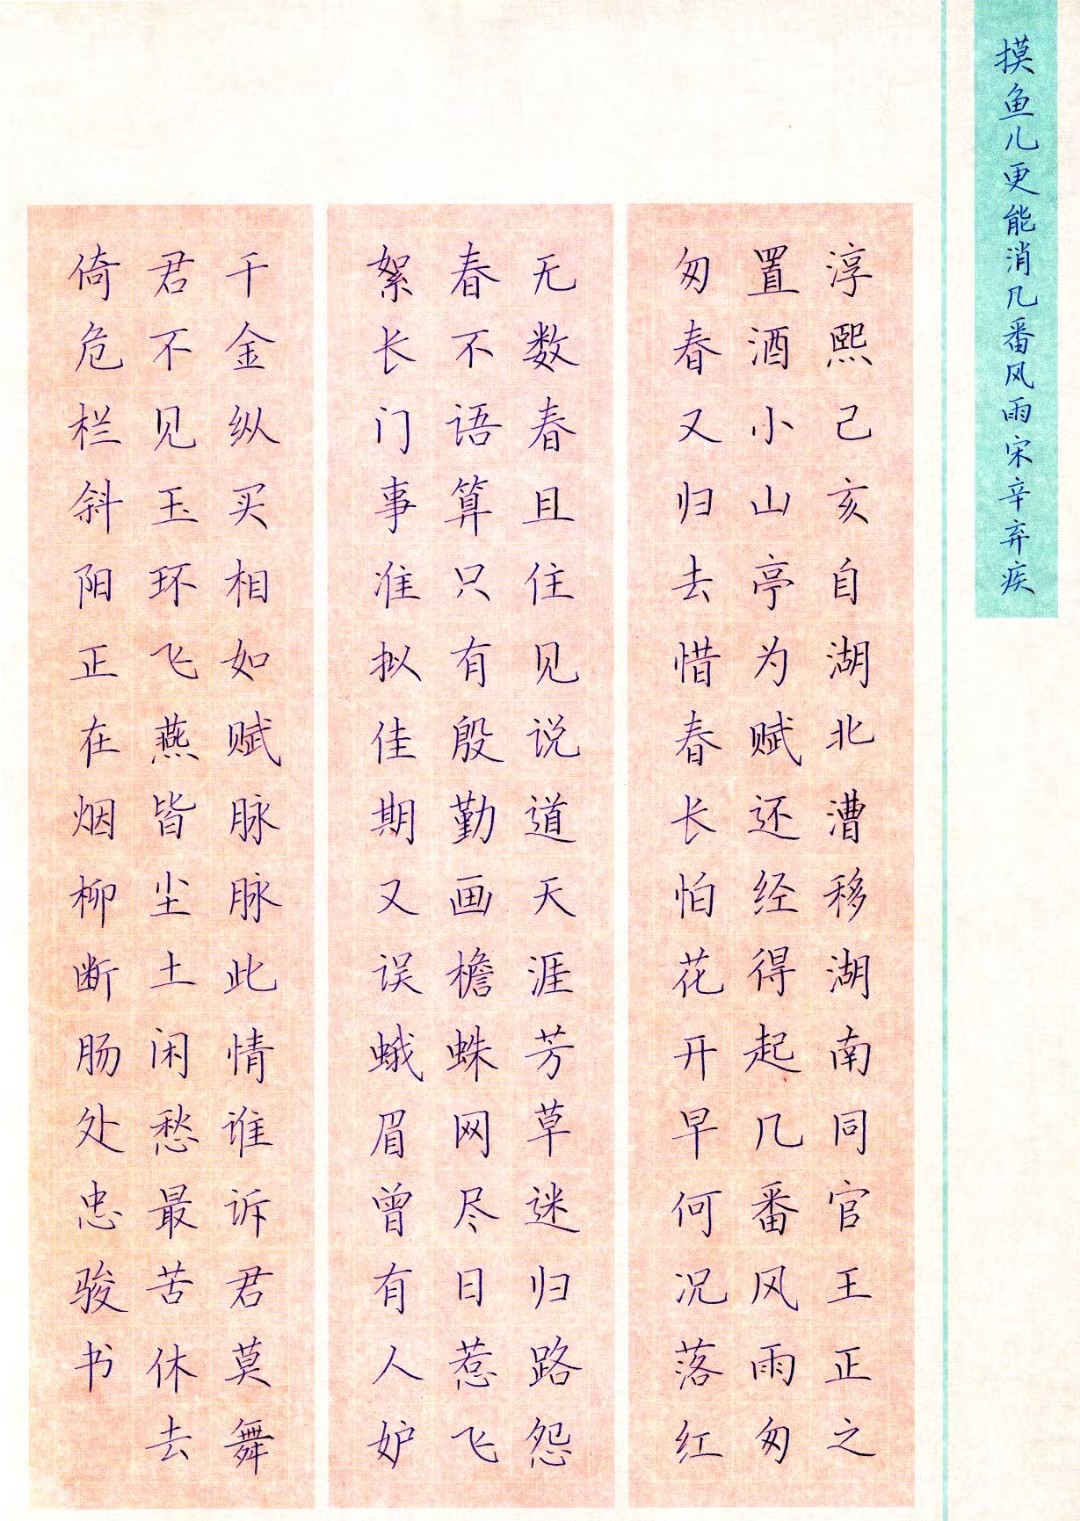 摸鱼儿更能消几番风雨宋辛弃疾
淳熙己亥自湖北漕移湖南同官王正之
置酒小山亭为赋还经得起几番风雨匆
匆春又归去惜春长怕花开早何况落红
无数春且住见说道天涯芳草迷归路怨
春不语算只有殷勤画檐蛛网尽日惹飞
絮长门事准拟佳期又误蛾眉曾有人妒
千金纵买相如赋脉脉此情谁诉君莫舞
君不见玉环飞燕皆尘土闲愁最苦休去
倚危栏斜阳正在烟柳断肠处忠骏书